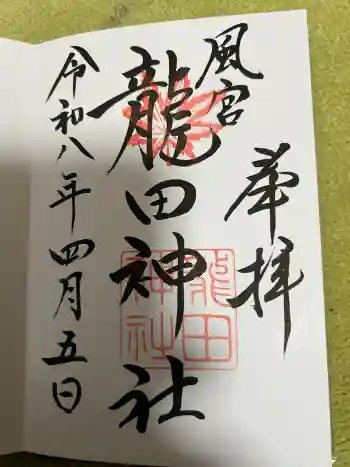 奉拝
風宮
龍田神社
令和八年四月五日
龍田
神社